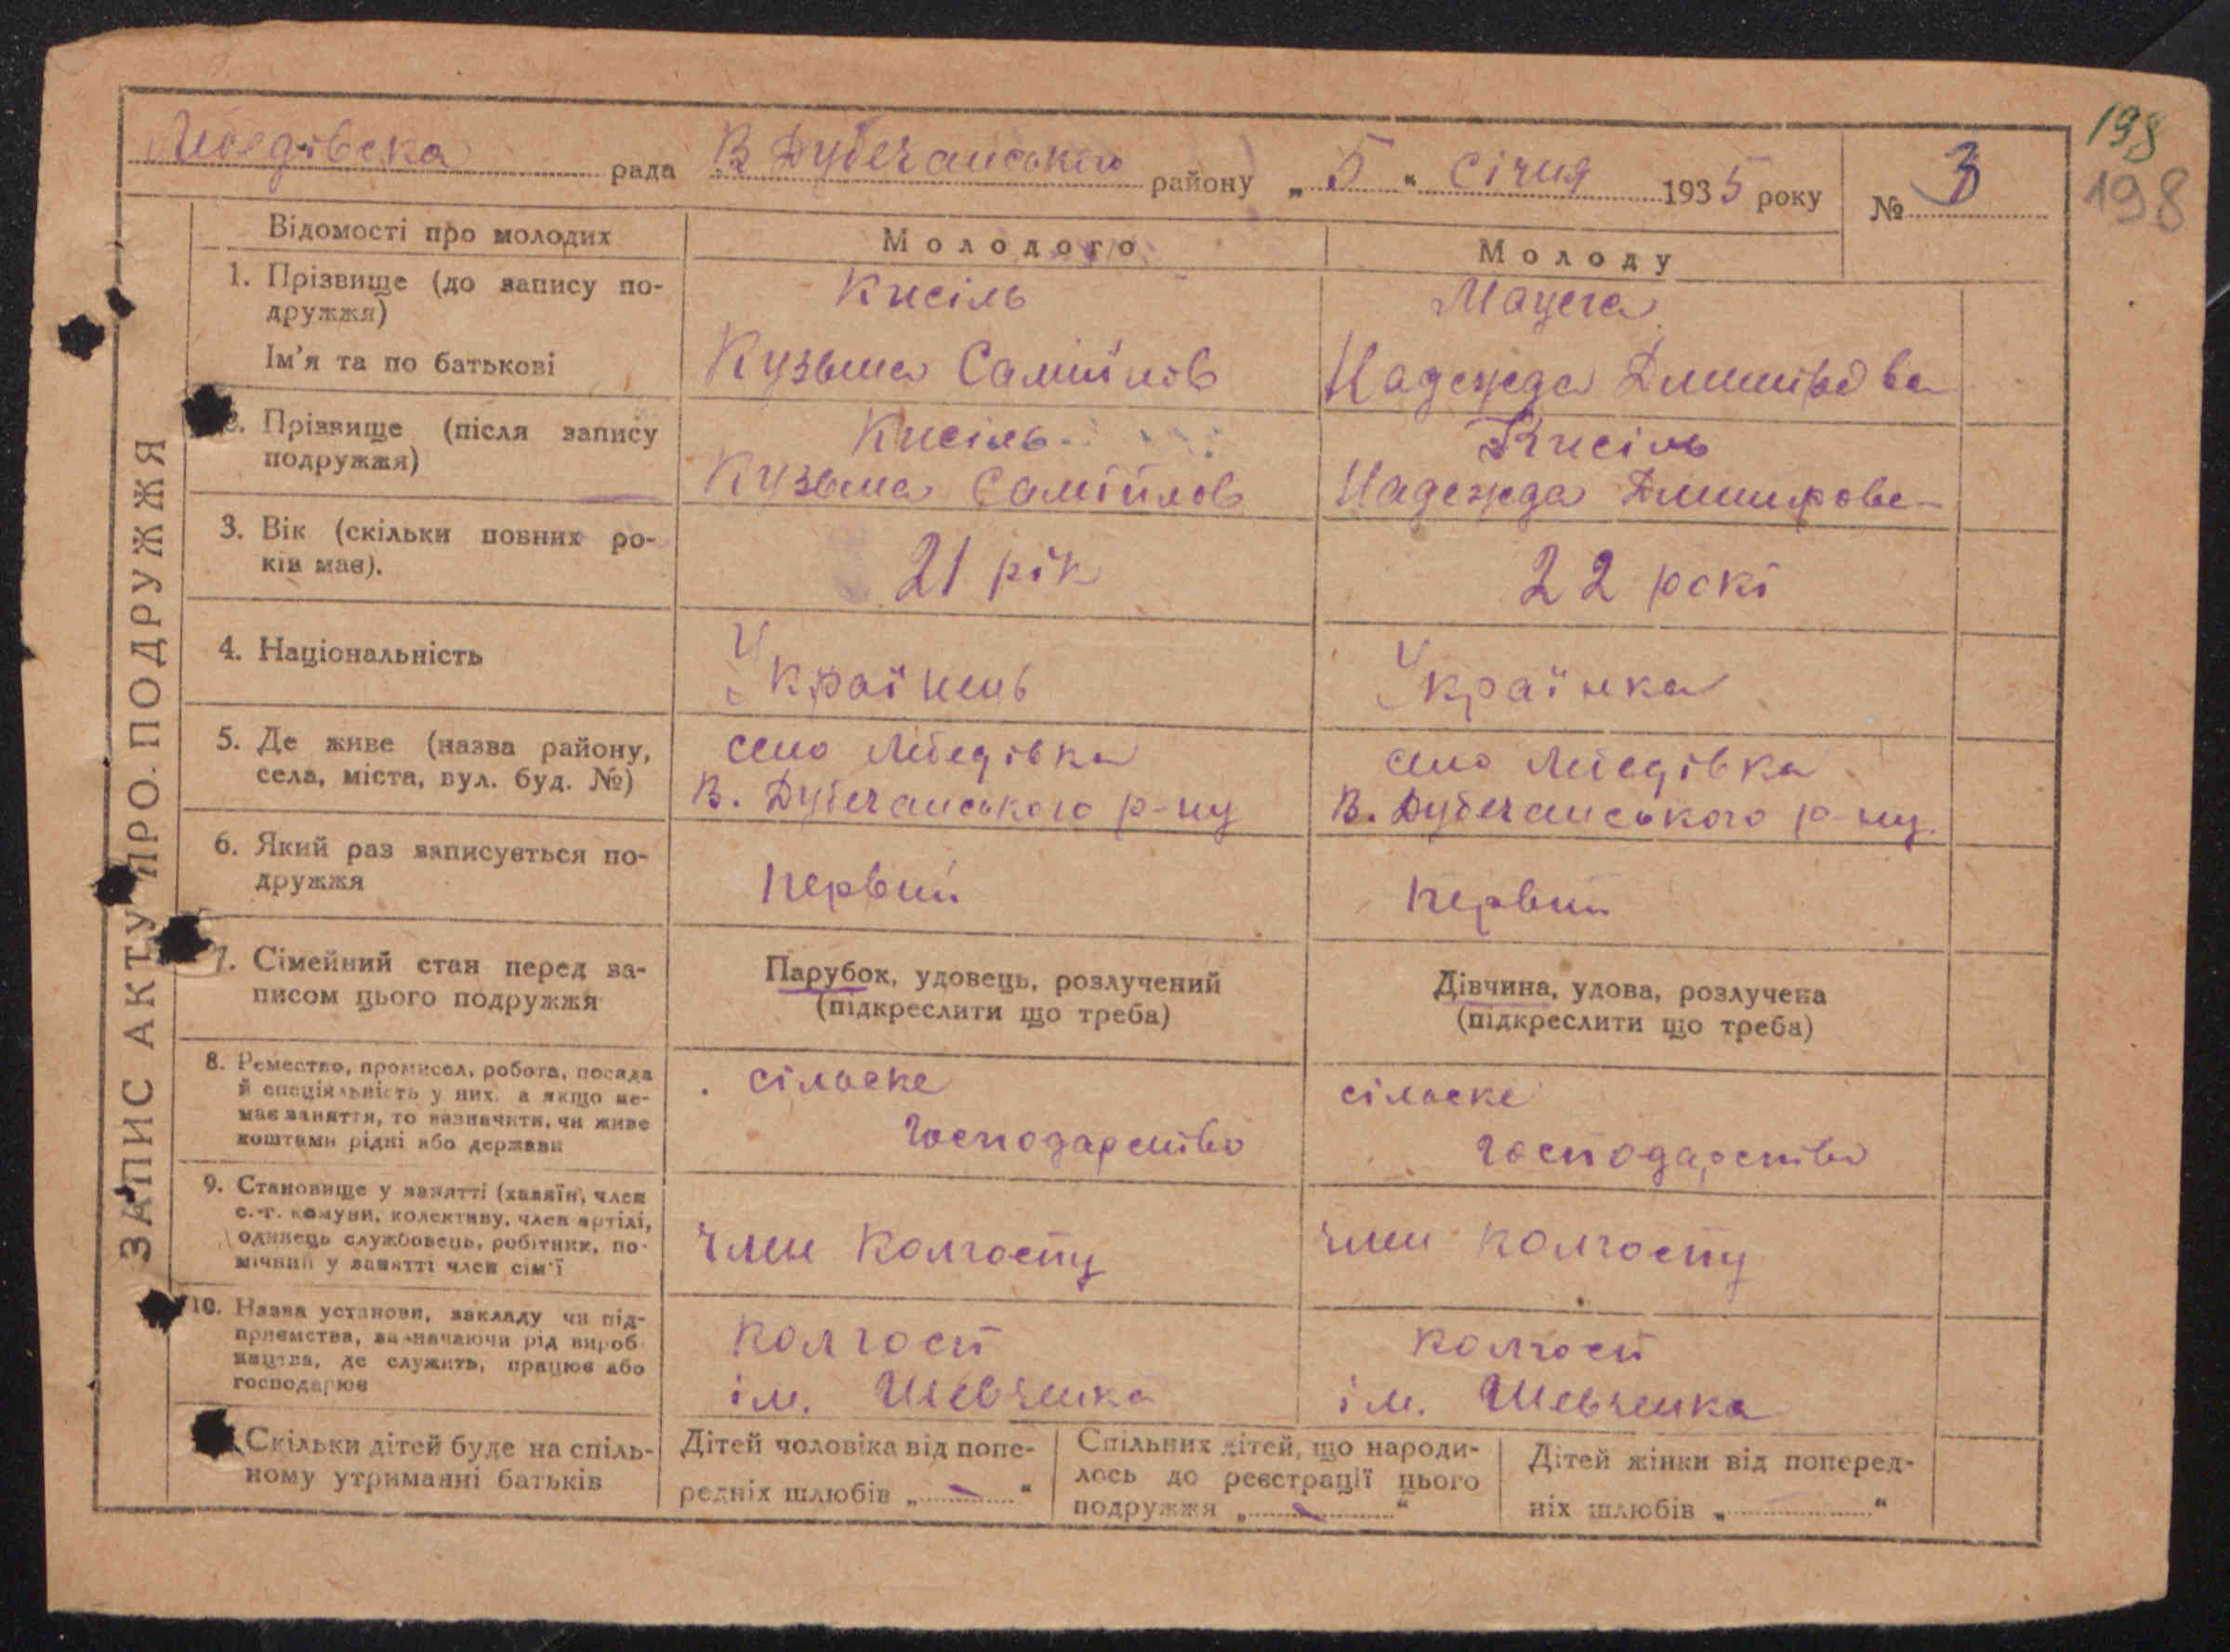 198
198
Лебедівска рада В Дубечанського району „ 5 “ Січня 1935 року № 3
ЗАПИС АКТУ ПРО ПОДРУЖЖЯ
Відомості про молодих
Молодого
Молоду
1. Прізвище (до запису по-
дружжя)
Ім'я та по батькові
Кисіль
Кузьма Самійлов
Надежда
. Прізвище (після запису
подружжя)
Кисіль
Кузьма Самійлов
Кисіль
Надежда
3. Вік (скільки повних ро-
ків має).
21 рік
22 рокі
4. Національність
Українець
Українка
5. Де живе (назва району,
села, міста, вул. буд. №)
село Лебедівка
В. Дубечанського р-ну
село Лебедівка
В. Дубечанського р-ну.
6. Який раз записується по-
дружжя
первий
первий
7. Сімейний стан перед за-
писом цього подружжя
Парубок, удовець, розлучений
(підкреслити що треба)
Дівчина, удова, розлучена
(підкреслити що треба)
8. Ремество, промисел, робота, посада
й спеціяльність у них, а якщо не-
має заняття, то зазначити, чи живе
коштами рідні або держави
сільске
господарство
сільске
господарство
9. Становище у занятті (хазяїн, член
с.-г. комуни, колективу, член артілі,
одинець службовець, робітник, по-
мічний у занятті член сім'ї
член колгоспу
член колгоспу
10. Назва установи, закладу чи під-
приємства, зазначаючи рід вироб-
ництва, де служить, працює або
господарює
колгосп
ім. Шевченка
колгосп
ім. Шевченка
Скільки дітей буде на спіль-
ному утриманні батьків
Дітей чоловіка від попе-
редніх шлюбів „ — “
Спільних дітей, що народи-
лось до реєстрації цього
подружжя „ — “
Дітей жінки від поперед-
ніх шлюбів „ “